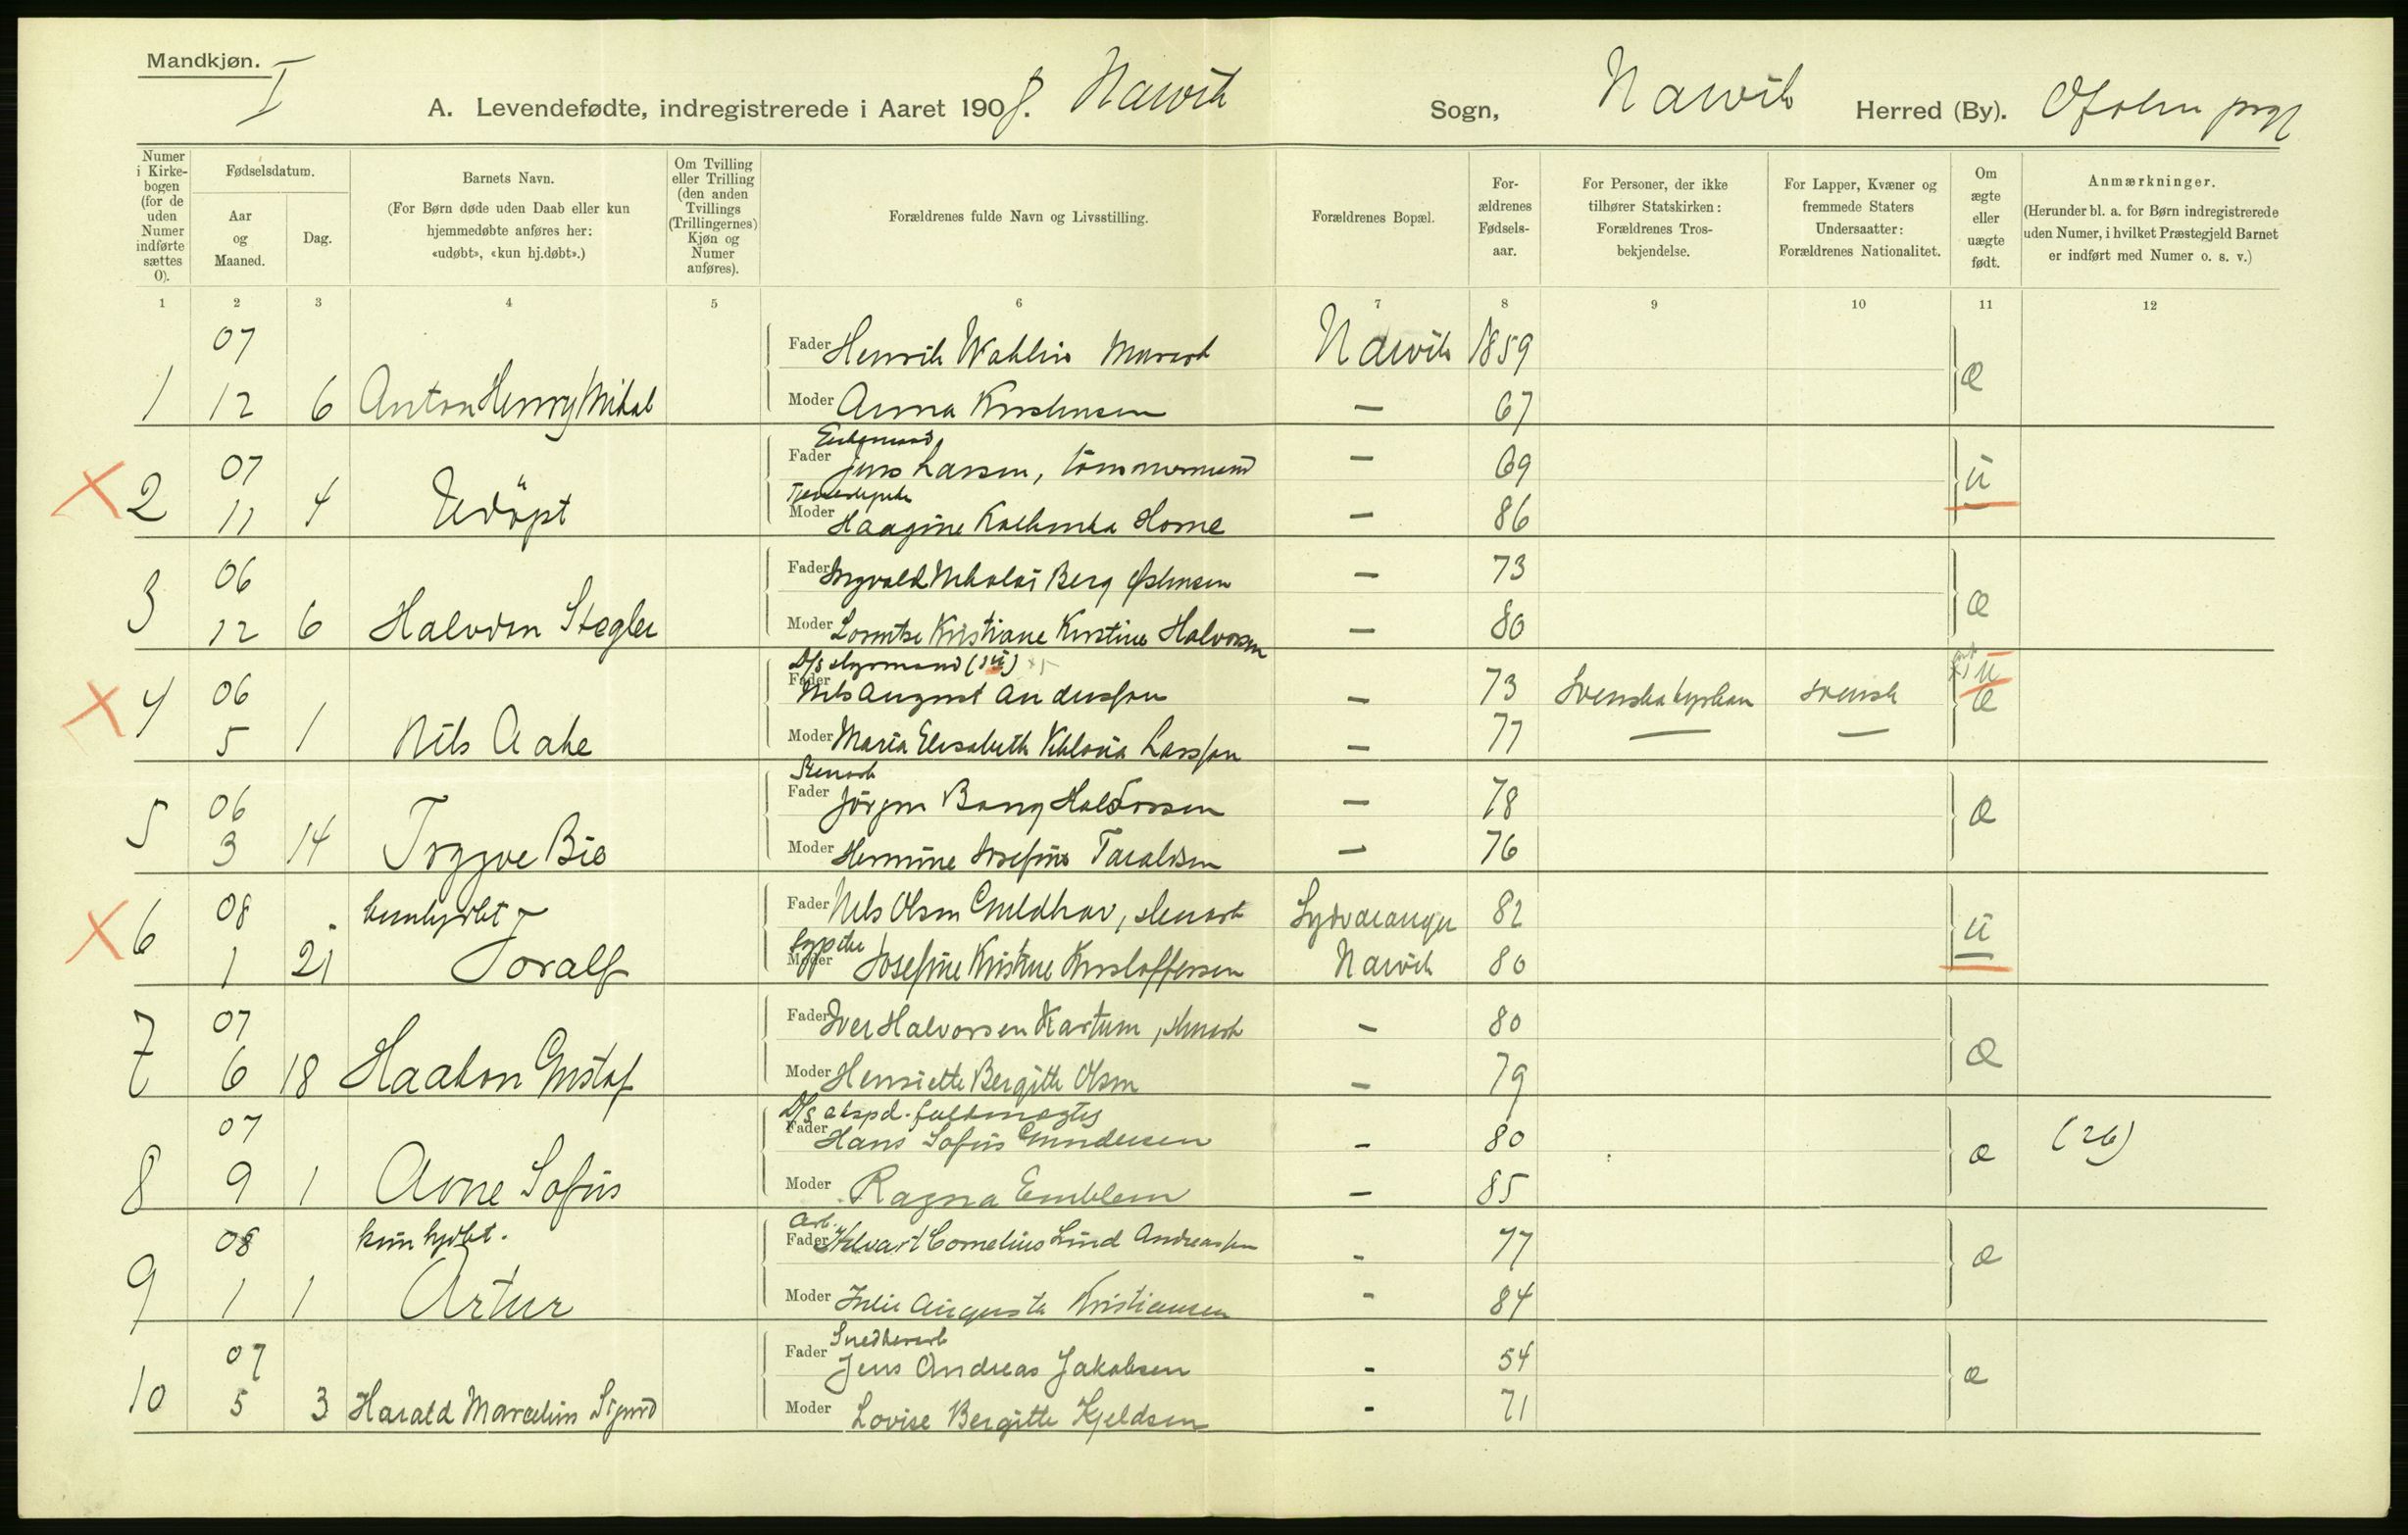 Mandkjøn.
I
A. Levendefødte, indregistrerede i Aaret 1908. Narvik Sogn, Narvik Herred (By). Ofoten prgj
Numer i Kirkebogen (for de uden Numer indførte sættes 0).
Fødselsdatum.
Aar og Maaned.
Dag.
Barnets Navn.
(For Børn døde uden Daab eller kun hjemmedøbte anføres her: «udøbt», «kun hj.døbt».)
Om Tvilling eller Trilling (den anden Tvillings (Trillingernes) Kjøn og Numer anføres).
Forældrenes fulde Navn og Livsstilling.
Forældrenes Bopæl.
Forældrenes Fødselsaar.
For Personer, der ikke tilhører Statskirken: Forældrenes Trosbekjendelse.
For Lapper, Kvæner og fremmede Staters Undersaatter: Forældrenes Nationalitet.
Om ægte eller uægte født.
Anmærkninger.
(Herunder bl. a. for Børn indregistrerede uden Numer, i hvilket Præstegjeld Barnet er indført med Numer o. s. v.)
1 2 3 4 5 6 7 8 9 10 11 12
07 Fader Henrik Wahlin Murarb Narvik 1859
1 12 6 Anton Henry Mikal Moder Anna Kristensen — 67 æ
Enkemand
07 Fader Jens Larsen, tömmermand — 69
Tjenestepike
2 11 4 Udöpt Moder Haagine Kathinka Horne — 86 ü
06 Fader Ingvald Nikolai Berg Østensen — 73
3 12 6 Halvdan Stegler Moder Lorentse Kristiane Kirstine Halvorsen — 80 æ
D/s styrmand (så)
06 Fader Nils August Andersson — 73 Svenska kyrkan svensk ü
4 5 1 Nils Aake Moder Maria Elisabeth Viktoria Larsson — 77 — — æ
Stenarb
06 Fader Jörgen Bang Haldorsen — 78
5 3 14 Trygve Bie Moder Hermine Josefine Taraldsen — 76 æ
08 kun hjdbt Fader Nils Olsen Guldhav, stenarb Sydvaranger 82
Sypike
6 1 21 Toralf Moder Josefine Kristine Kristoffersen Narvik 80 ü
07 Fader Iver Halvorsen Kartum, stenarb — 80
7 6 18 Haakon Gustaf Moder Henriette Bergitte Olsen — 79 æ
D/s ekspd. fuldmægtig
07 Fader Hans Sofus Gundersen — 80
8 9 1 Arne Sofus Moder Ragna Emblem — 85 æ (26)
Arb.
08 kun hjdbt. Fader Hilvart Cornelius Lund Andreassen — 77
9 1 1 Artur Moder Julie Augusta Kristiansen — 84 æ
Snedkerarb
07 Fader Jens Andreas Jakobsen — 54
10 5 3 Harald Marcelius Sigurd Moder Lovise Bergitte Kjeldsen — 71 æ